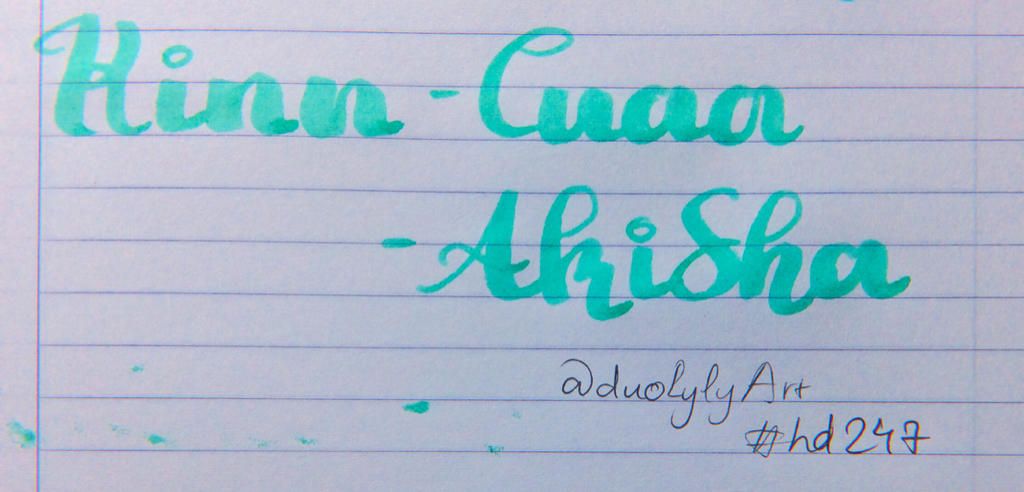 Hinn - Cuaa
- AkiSha
@duolylyArt
#hd247